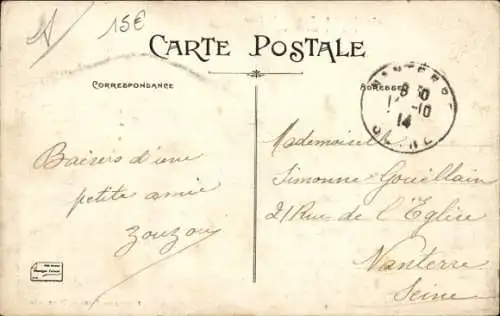 15€
CARTE POSTALE
CORRESPONDANCE
ADRESSE
NANTERRE
8 30
-10
14
SEINE
Baisers d'une
petite amie
Zouzou
Mademoiselle
Simonne Gouillain
21 Rue de l'Eglise
Nanterre
Seine